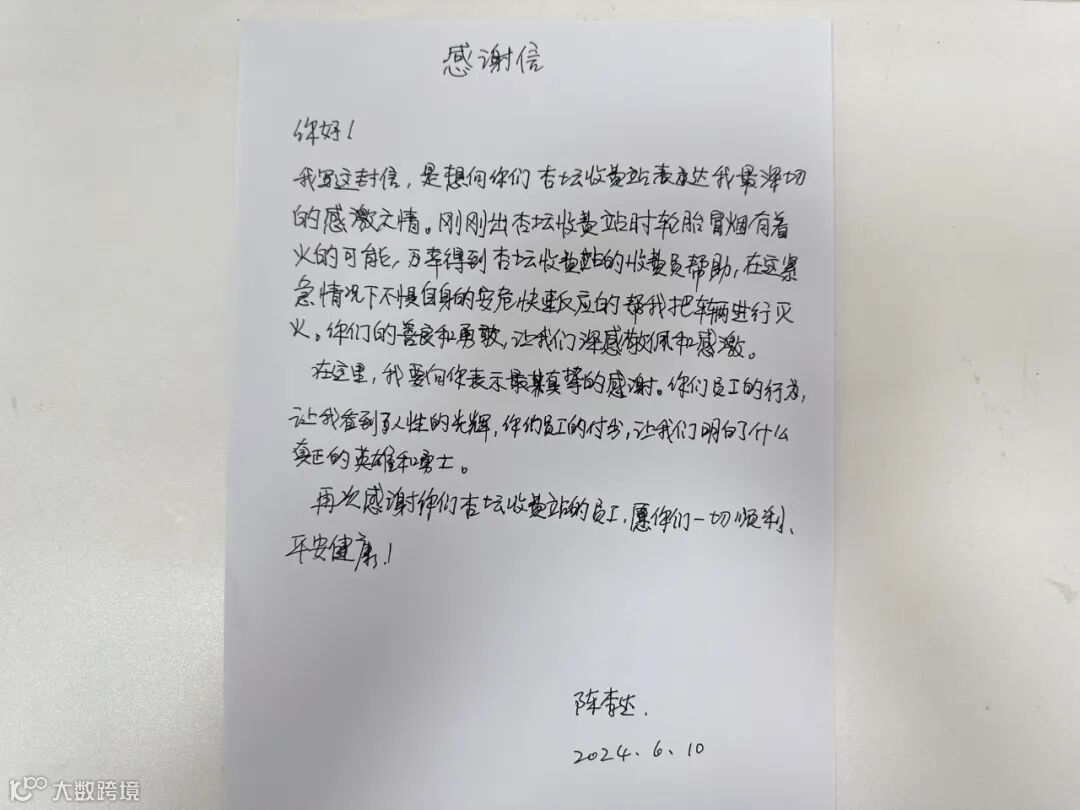 感谢信
你好！
我写这封信，是想向你们杏坛收费站表达我最深切
的感激之情。刚刚出杏坛收费站时轮胎冒烟有着
火的可能，万幸得到杏坛收费站的收费员帮助，在这紧
急情况下不惧自身的安危快速反应的帮我把车辆进行灭
火。你们的善良和勇敢，让我们深感敬佩和感激。
在这里，我要向你表示最真挚的感谢。你们员工的行为，
让我看到了人性的光辉，你们员工的付出，让我们明白了什么
真正的英雄和勇士。
再次感谢你们杏坛收费站的员工，愿你们一切顺利、
平安健康！
陈李达.
2024.6.10
大数跨境